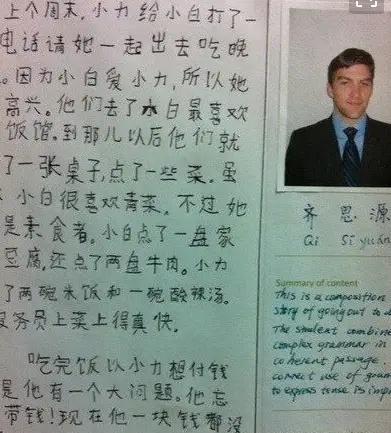 上个周末,小力给小白打了一
电话请她一起出去吃晚
。因为小白爱小力,所以她
高兴。他们去了小白最喜欢
饭馆。到那儿以后他们就
了一张桌子,点了一些菜。虽
小白很喜欢青菜。不过她
是素食者。小白点了一盘家
豆腐,还点了两盘牛肉。小力
了两碗米饭和一碗酸辣汤。
务员上菜上得真快。
吃完饭以小力想付钱
是他有一个大问题。他忘
带钱!现在他一块钱都没
齐思源
Qi Siyuan
Summary of content
This is a composition
story of going out to
The student combine
complex grammar in
coherent passage
correct use of
to express tense is